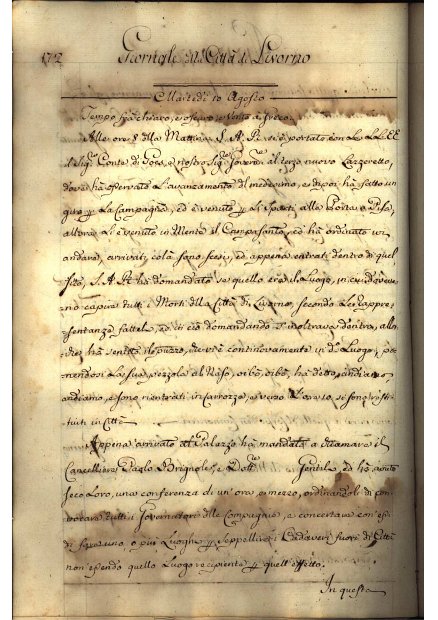 172
Giornale di Città di Livorno
Martedi 10 Agosto
Tempo chiaro, e vento a Greco.
Alle ore 8 della Mattina S. A. R. si è portato con le LL. EE.
il Sigr. Conte di Goes, e nostro Sigr. Govern. al terzo nuovo Lazeretto,
dove ha osservato l'avanzamento del medesimo, e di poi ha fatto un
giro p la Campagna, ed è venuto p li Sparti alla Porta a Pisa,
allora li è venuto in Mente il Campo Santo, ed ha ordinato
andare, arrivati colà sono scesi, ed appena entrati dentro di quel
S. A. R. ha domandato se quello era il Luogo, in cui
no capire tutti i Morti della Città di Livorno, secondo le rappre-
sentanze fatteli, e ciò domandando s'inoltrava dentro, allo
ha sentito il puzzo, che vi è continovamente in do. Luogo, po-
nendosi la sua pezzola al Naso, oibò, oibò, ha detto, andiamo
andiamo, e sono rientrati in Carrozza, e verso l'ore 10 si sono resti-
tuiti in Città
Appena arrivato al Palazzo ha mandato a chiamare il
Cancelliere Paolo Brignole, e Dott. Gentili ed ha avuto
seco Loro, una conferenza di un'ora e mezzo, ordinandoli di con-
vocare tutti i Governatori delle Compagnie, e concertare con essi
di fare uno, o più Luoghi p seppellire i Cadaveri fuori di Città
non essendo quello Luogo recipiente p quell'effetto.
In questa